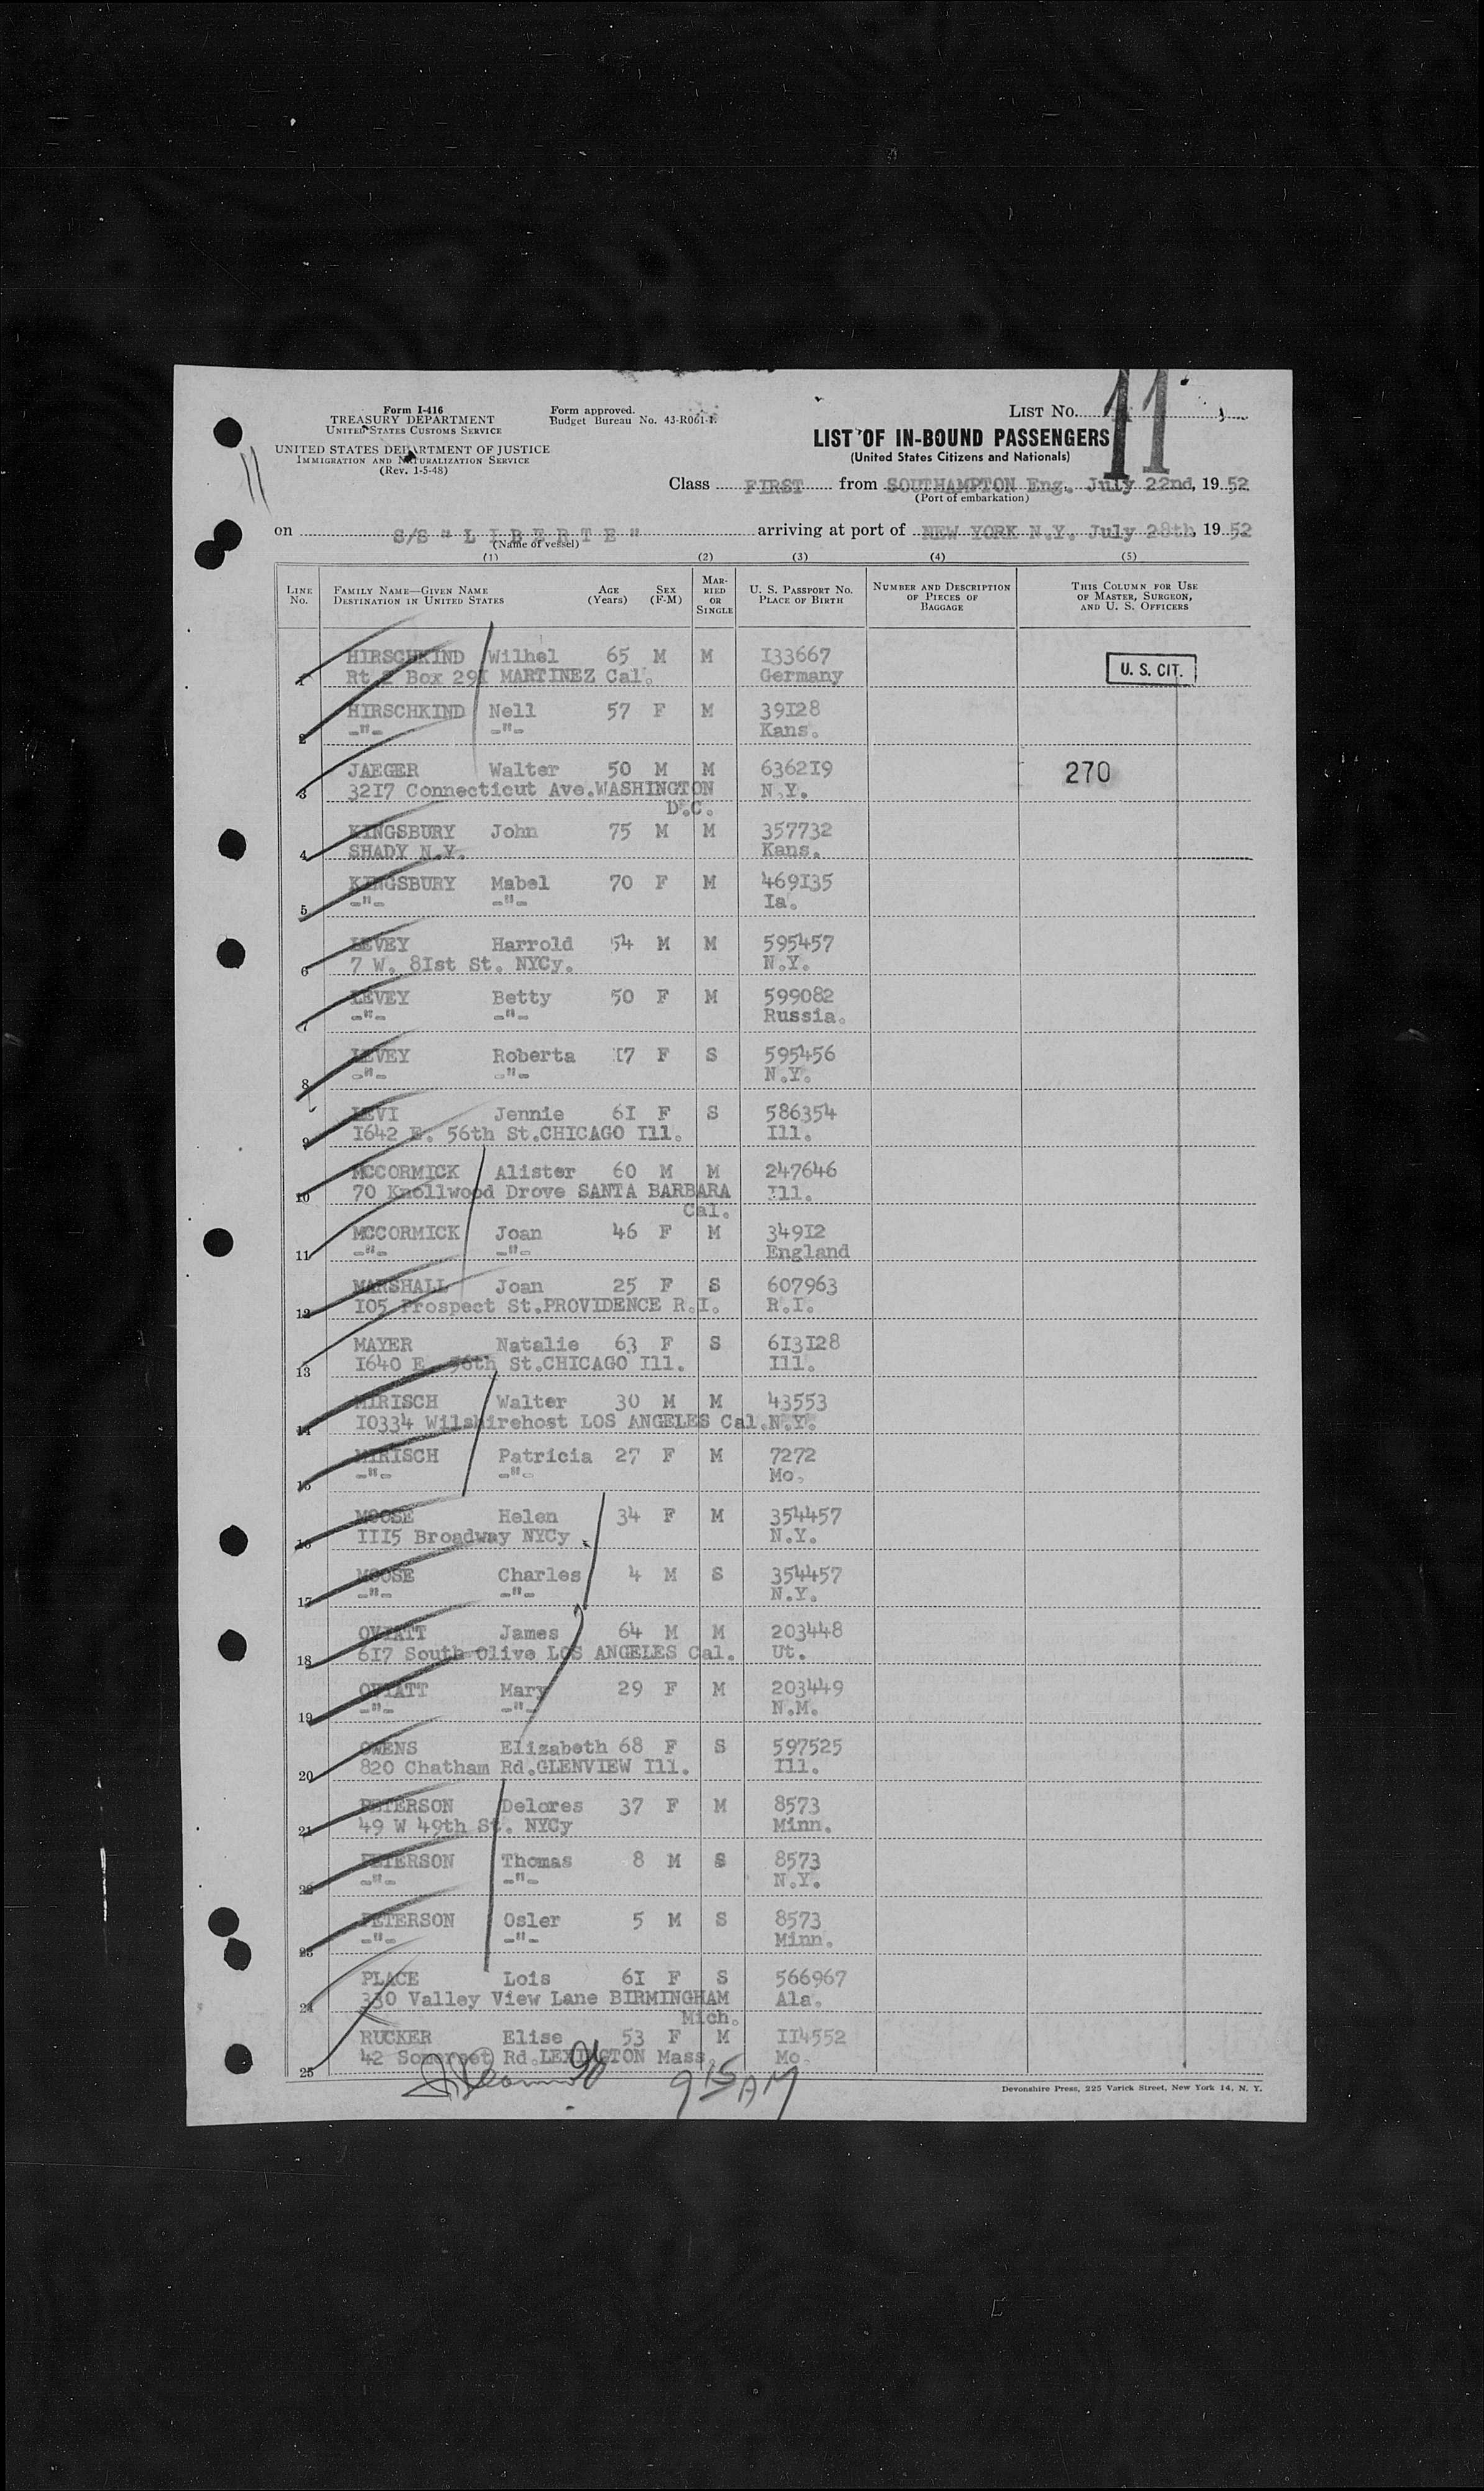 Form I-416
TREASURY DEPARTMENT
UNITED STATES CUSTOMS SERVICE
UNITED STATES DEPARTMENT OF JUSTICE
IMMIGRATION AND NATURALIZATION SERVICE
(Rev. 1-5-48)
Form approved.
Budget Bureau No. 43-R061-1.
LIST No. 11
LIST OF IN-BOUND PASSENGERS
(United States Citizens and Nationals)
11
Class FIRST from SOUTHAMPTON Eng. July 22nd, 1952
(Port of embarkation)
on S/S " L I B E R T E " arriving at port of NEW YORK N.Y. July 28th, 1952
(Name of vessel)
(1) (2) (3) (4) (5)
LINE No. FAMILY NAME—GIVEN NAME DESTINATION IN UNITED STATES AGE (Years) SEX (F-M) MARRIED OR SINGLE U. S. PASSPORT NO. PLACE OF BIRTH NUMBER AND DESCRIPTION OF PIECES OF BAGGAGE THIS COLUMN FOR USE OF MASTER, SURGEON, AND U. S. OFFICERS
HIRSCHKIND Wilhel 65 M M I33667
1 Rt 2 Box 29I MARTINEZ Cal. Germany U. S. CIT.
HIRSCHKIND Nell 57 F M 39I28
2 -"- -"- Kans.
JAEGER Walter 50 M M 6362I9 270
3 32I7 Connecticut Ave.WASHINGTON N.Y.
D.C.
KINGSBURY John 75 M M 357732
4 SHADY N.Y. Kans.
KINGSBURY Mabel 70 F M 469I35
5 -"- -"- Ia.
LEVEY Harrold 54 M M 595457
6 7 W. 8Ist St. NYCy. N.Y.
LEVEY Betty 50 F M 599082
7 -"- -"- Russia.
LEVEY Roberta I7 F S 595456
8 -"- -"- N.Y.
LEVI Jennie 6I F S 586354
9 I642 E. 56th St.CHICAGO Ill. Ill.
MCCORMICK Alister 60 M M 247646
10 70 Knollwood Drove SANTA BARBARA Ill.
Cal.
MCCORMICK Joan 46 F M 349I2
11 -"- -"- England
MARSHALL Joan 25 F S 607963
12 I05 Prospect St.PROVIDENCE R.I. R.I.
MAYER Natalie 63 F S 6I3I28
13 I640 E. 56th St.CHICAGO Ill. Ill.
MIRISCH Walter 30 M M 43553
14 I0334 Wilshirehost LOS ANGELES Cal.N.Y.
MIRISCH Patricia 27 F M 7272
15 -"- -"- Mo.
MOOSE Helen 34 F M 354457
16 III5 Broadway NYCy. N.Y.
MOOSE Charles 4 M S 354457
17 -"- -"- N.Y.
OVIATT James 64 M M 203448
18 6I7 South Olive LOS ANGELES Cal. Ut.
OVIATT Mary 29 F M 203449
19 -"- -"- N.M.
OWENS Elizabeth 68 F S 597525
20 820 Chatham Rd.GLENVIEW Ill. Ill.
PETERSON Delores 37 F M 8573
21 49 W 49th St. NYCy Minn.
PETERSON Thomas 8 M S 8573
22 -"- -"- N.Y.
PETERSON Osler 5 M S 8573
23 -"- -"- Minn.
PLACE Lois 6I F S 566967
24 330 Valley View Lane BIRMINGHAM Ala.
Mich.
RUCKER Elise 53 F M II4552
25 42 Somerset Rd.LEXINGTON Mass. Mo.
9 15 AM
Devonshire Press, 225 Varick Street, New York 14, N. Y.